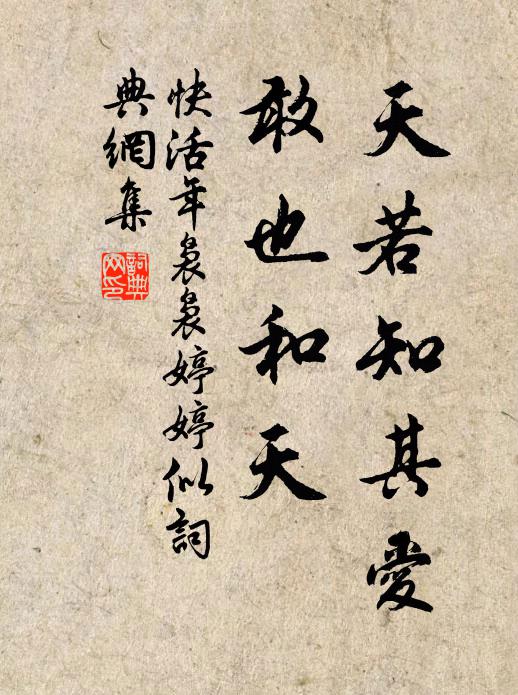 天若知其愛
敢也和天
快活年裊裊婷婷似詞
典網集
詞典
网印